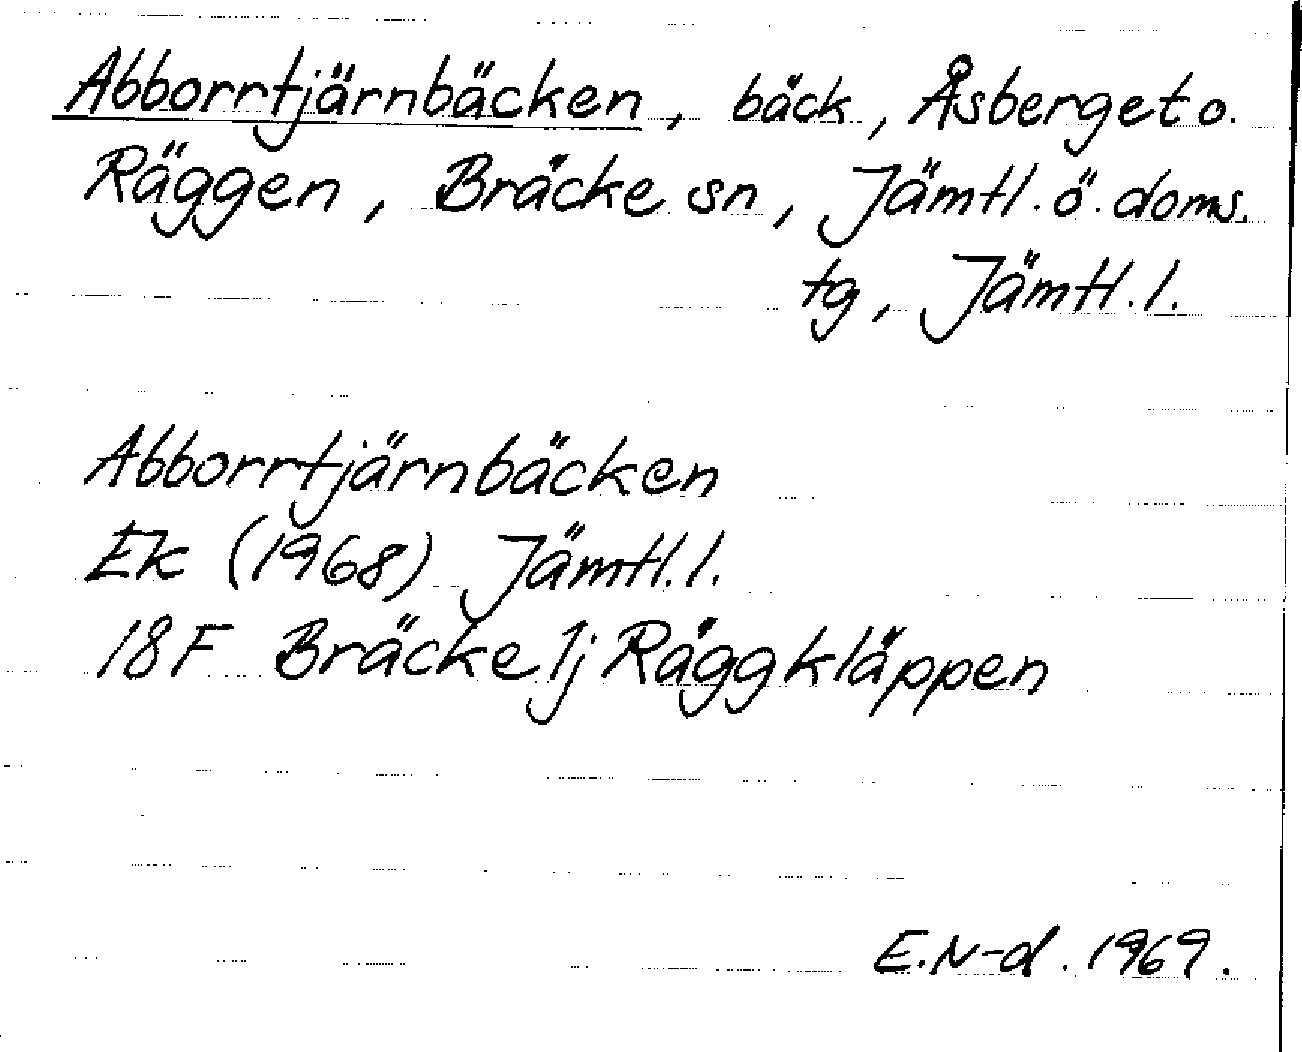 Abborrtjärnbäcken, bäck, Åsberget o.
Räggen, Bräcke sn, Jämtl. ö. doms.
tg, Jämtl. l.
Abborrtjärnbäcken
Ek (1968) Jämtl. l.
18F Bräcke 1j Räggkläppen
E.N-d. 1969.